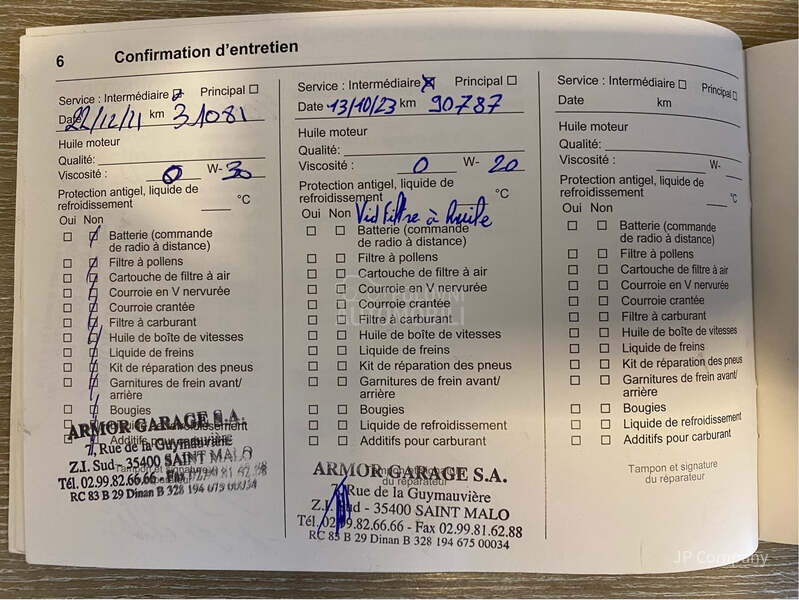 6 Confirmation d'entretien
Service : Intermédiaire Principal
Date 22/12/21 km 31081
Huile moteur
Qualité:
Viscosité : 0 W- 30
Protection antigel, liquide de
refroidissement °C
Oui Non
Batterie (commande
de radio à distance)
Filtre à pollens
Cartouche de filtre à air
Courroie en V nervurée
Courroie crantée
Filtre à carburant
Huile de boîte de vitesses
Liquide de freins
Kit de réparation des pneus
Garnitures de frein avant/
arrière
Bougies
ARMOR GARAGE S.A.
7, Rue de la Guymauvière
Z.I. Sud - 35400 SAINT MALO
Tél. 02.99.82.66.66 - Fax
RC 83 B 29 Dinan B 328 194 675 00034
Service : Intermédiaire Principal
Date 13/10/23 km 90787
Huile moteur
Qualité:
Viscosité : 0 W- 20
Protection antigel, liquide de
refroidissement °C
Oui Non Vid Filtre à huile
Batterie (commande
de radio à distance)
Filtre à pollens
Cartouche de filtre à air
Courroie en V nervurée
Courroie crantée
Filtre à carburant
Huile de boîte de vitesses
Liquide de freins
Kit de réparation des pneus
Garnitures de frein avant/
arrière
Bougies
Liquide de refroidissement
Additifs pour carburant
Tampon et signature
du réparateur
ARMOR GARAGE S.A.
7, Rue de la Guymauvière
Z.I. Sud - 35400 SAINT MALO
Tél. 02.99.82.66.66 - Fax 02.99.81.62.88
RC 83 B 29 Dinan B 328 194 675 00034
Service : Intermédiaire Principal
Date km
Huile moteur
Qualité:
Viscosité : W-
Protection antigel, liquide de
refroidissement °C
Oui Non
Batterie (commande
de radio à distance)
Filtre à pollens
Cartouche de filtre à air
Courroie en V nervurée
Courroie crantée
Filtre à carburant
Huile de boîte de vitesses
Liquide de freins
Kit de réparation des pneus
Garnitures de frein avant/
arrière
Bougies
Liquide de refroidissement
Additifs pour carburant
Tampon et signature
du réparateur
JP Company